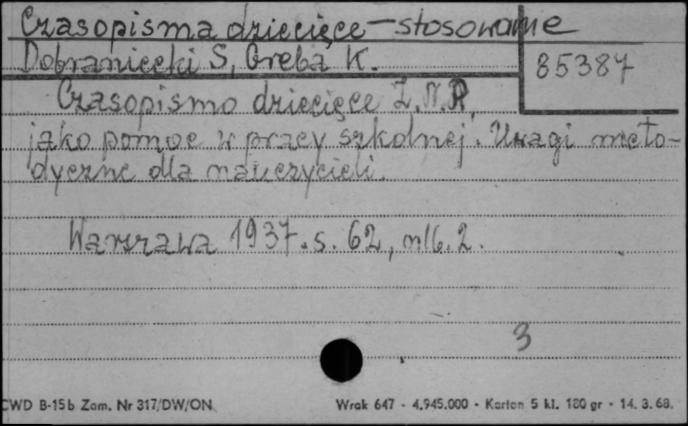 Czasopisma dziecięce - stosowanie
Dobraniecki S, Greba K.
85387
Czasopismo dziecięce Z.N.P.
jako pomoc w pracy szkolnej. Uwagi meto-
dyczne dla nauczycieli.
Warszawa 1937. s. 62, nlb. 2.
3
CWD B-15b Zam. Nr 317/DW/ON
Wrak 647 - 4.945.000 - Karton 5 kl. 180 gr - 14. 3. 68.